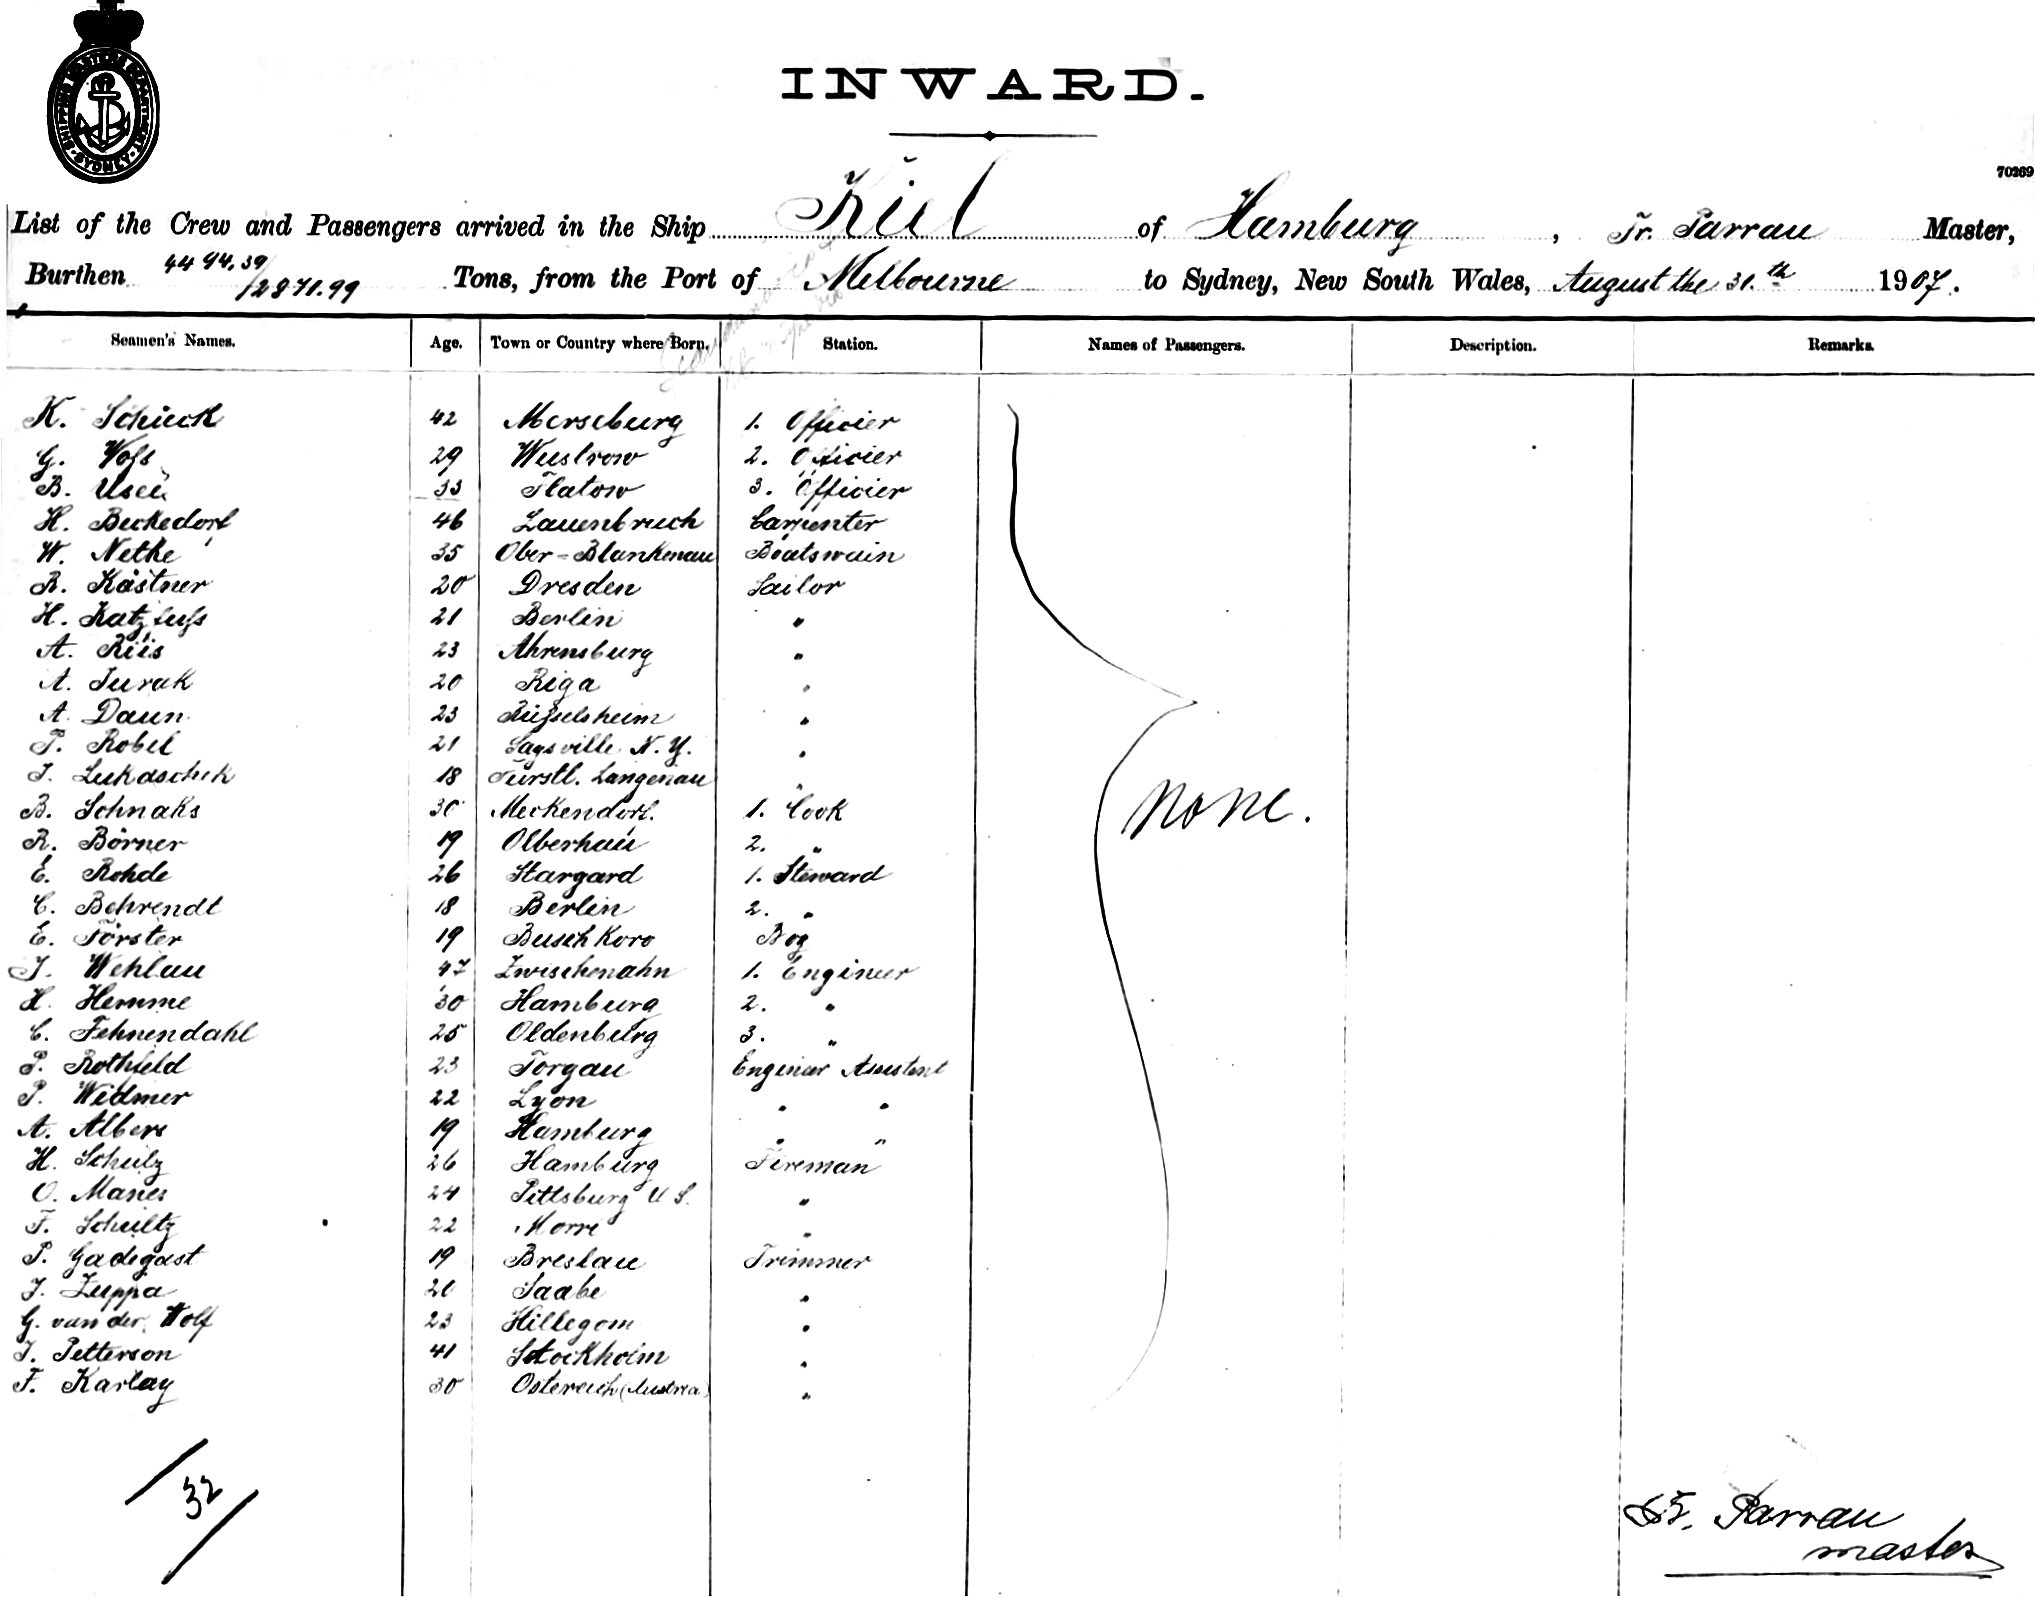 SHIPPING MASTERS DEPARTMENT
SYDNEY
INWARD.
70269
List of the Crew and Passengers arrived in the Ship Kiel of Hamburg, Fr. Parrau Master,
Burthen 4494.39/2871.99 Tons, from the Port of Melbourne to Sydney, New South Wales, August the 31.th 1907.
Seamen's Names. Age. Town or Country where Born. Station. Names of Passengers. Description. Remarks.
K. Schieck 42 Merseburg 1. Officier
G. Voss 29 Wustrow 2. Officier
B. 33 Flatow 3. Officier
H. Beckedorf 46 Lauenbruch Carpenter
W. Nethe 35 Ober-Blankenau Boatswain
R. Kästner 20 Dresden Sailor
H. Katzfuss 21 Berlin "
A. Riis 23 Ahrensburg "
A. Jurak 20 Riga "
A. Daun 23 Rüsselsheim "
P. Robel 21 Saysville N.Y. "
J. Lukaschek 18 Fürstl. Langenau "
B. Schnaks 30 Meckendorf. 1. Cook
R. Börner 19 Olbernhau 2. "
E. Rohde 26 Stargard 1. Steward
C. Behrendt 18 Berlin 2. "
E. Förster 19 Buschkoro Boy
J. Wehlau 47 Zwischenahn 1. Engineer
H. Hemme 30 Hamburg 2. "
C. Fehnendahl 25 Oldenburg 3. "
P. Rothfeld 23 Torgau Engineer Assistent
P. Widmer 22 Lyon " "
A. Albers 19 Hamburg " "
H. Schulz 26 Hamburg Fireman
O. Manes 24 Pittsburg U.S. "
F. Schultz 22 Morre "
P. Gadegast 19 Breslau Trimmer
J. Zuppa 20 Saabe "
G. van der Wolf 23 Hillegom "
J. Petterson 41 Stockholm "
F. Karlay 30 Östereich (Austria) "
None.
32
Fr. Parrau
master